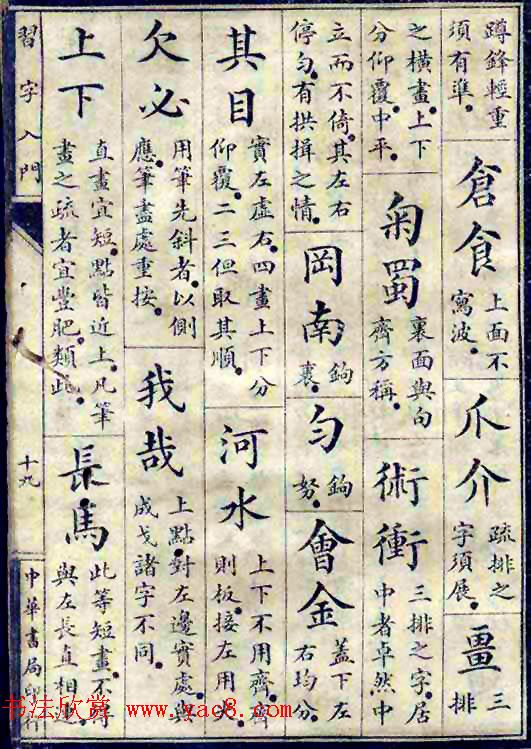 蹲鋒輕重
須有準。
倉食
上面不
寫波。
爪介
疏排之
字須展。
畺
三
排
之橫畫。上下
分仰覆。中平。
菊蜀
裏面與句
齊方稱。
術衝
三排之字。居
中者卓然中
立而不倚。其左右
停勻。有拱揖之情。
岡南
鉤
裏。
勻
鉤
努。
會金
蓋下左
右均分。
其目
實左虛右。四畫上下分
仰覆。二三但取其順。
河水
上下不用齊。齊
則板。接左用尖。
欠必
用筆先斜者。以側
應。筆盡處重按。
我哉
上點。對左邊實處。與
成戈諸字不同。
上下
直畫宜短。點皆近上。凡筆
畫之疏者宜豐肥。類此。
長馬
此等短畫。不得
與左長直相連
習字入門
十九
中華書局印
书法欣赏 www.yac8.com